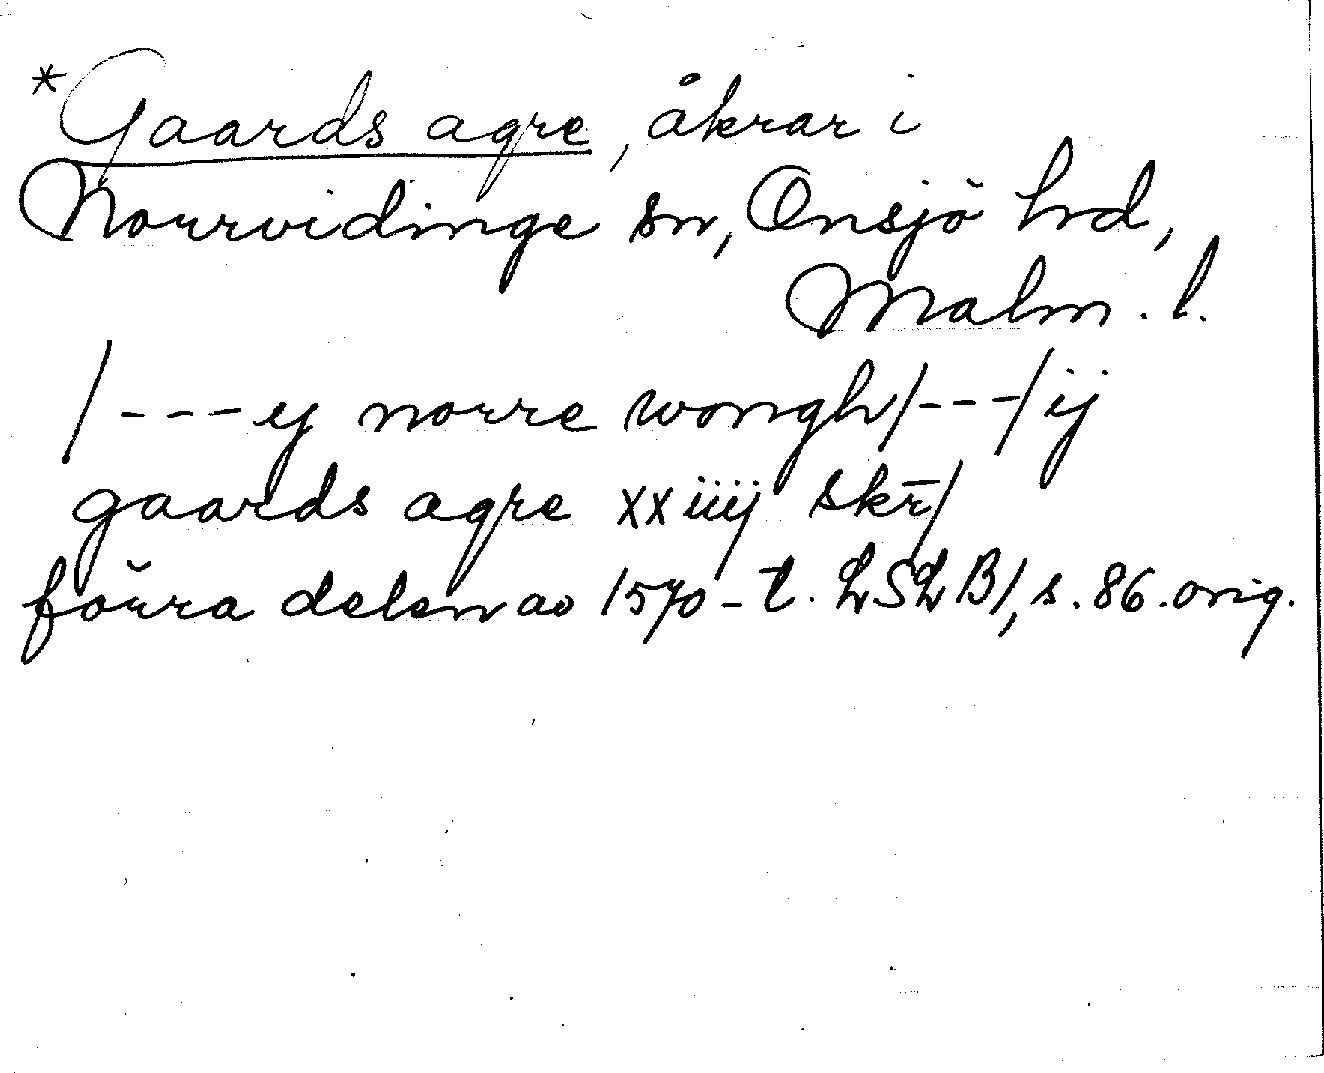 *Gaards agre, åkrar i
Norrvidinge sn, Onsjö hd,
Malm. l.
/---ij norre wongh/---/ij
gaards agre xxiiij skr̄/
förra delen av 1570-t. LSLB/, s. 86. orig.